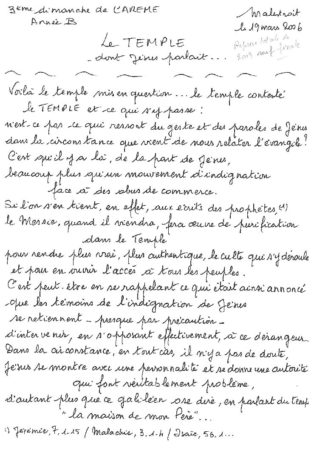 3ème dimanche de CAREME
Année B
Malestroit
le 19 mars 2006
Le TEMPLE
dont Jésus parlait...
Voilà le temple mis en question... le temple contesté
le TEMPLE et ce qui s'y passe :
n'est-ce pas ce qui ressort du geste et des paroles de Jésus
dans la circonstance que vient de nous relater l'évangile?
C'est qu'il y a là, de la part de Jésus,
beaucoup plus qu'un mouvement d'indignation
face à des abus de commerce.
Si l'on s'en tient, en effet, aux écrits des prophètes, (1)
le Messie, quand il viendra, fera œuvre de purification
dans le Temple
pour rendre plus vrai, plus authentique, le culte qui s'y déroule
et pour en ouvrir l'accès à tous les peuples.
C'est peut-être en se rappelant ce qui était ainsi annoncé
que les témoins de l'indignation de Jésus
se retiennent - presque par précaution -
d'intervenir, en s'opposant effectivement, à ce dérangeur.
Dans la circonstance, en tout cas, il n'y a pas de doute,
Jésus se montre avec une personnalité et se donne une autorité
qui font véritablement problème,
d'autant plus que ce galiléen ose dire, en parlant du Temple
"la maison de mon Père"...
1) Jérémie, 7, 1-15 / Malachie, 3, 1-4 / Isaïe, 56, 1...